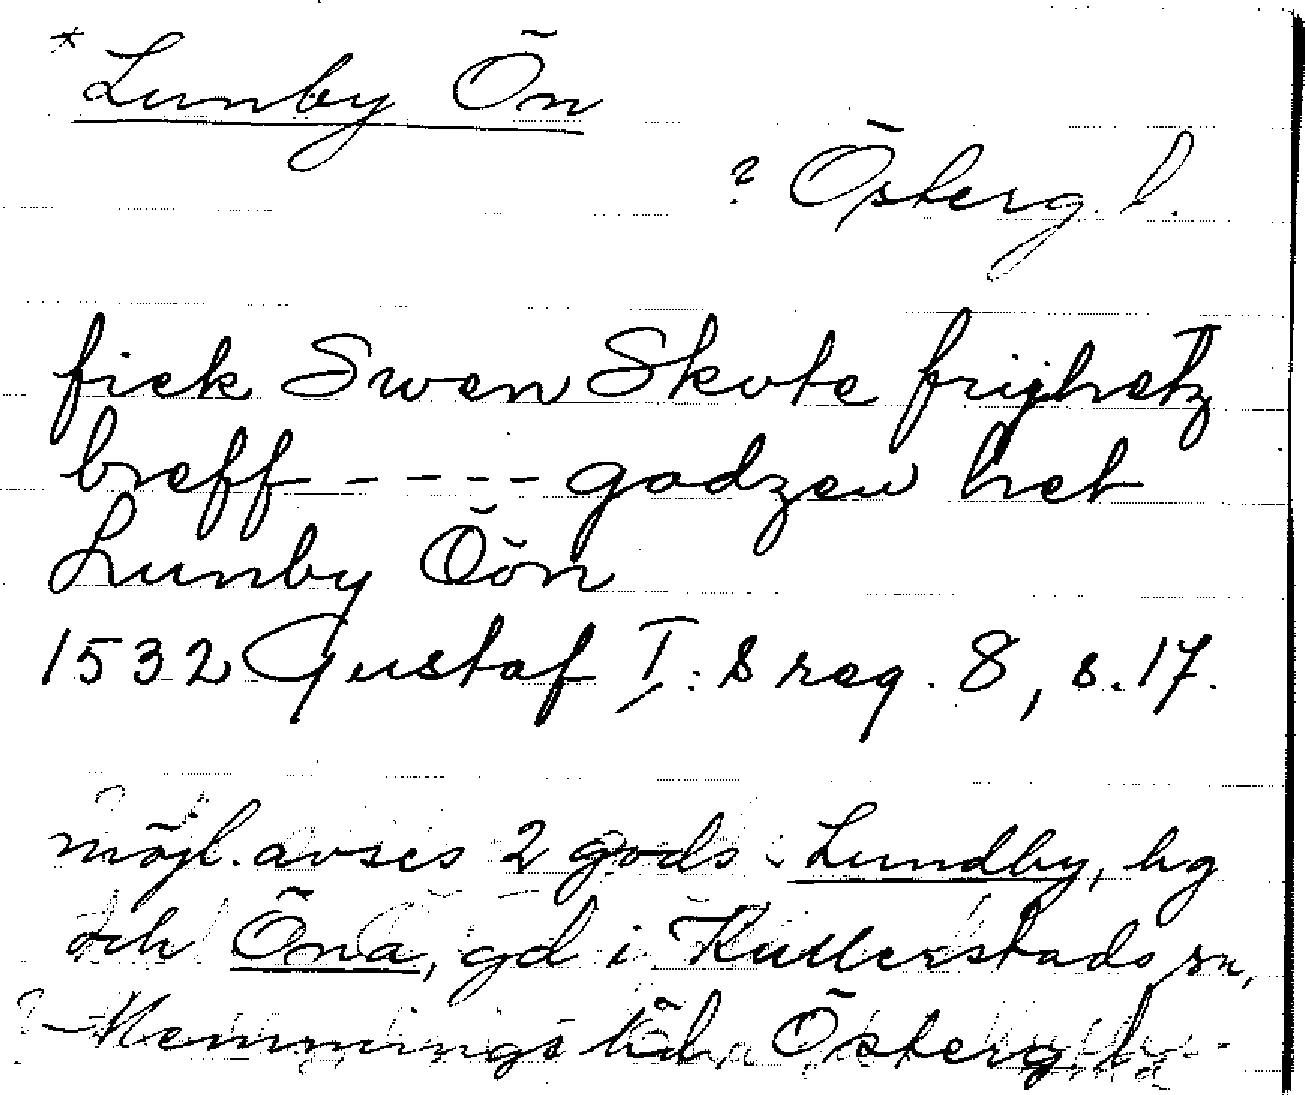 * Lunby Ön
? Österg. l.
fick Swen Skote frijhetz
breff ---- godzen het
Lunby Öön
1532 Gustaf I:s reg. 8, s. 17.
möjl. avses 2 gods: Lundby, hg
och Öna, gd i Kullerstads sn,
Memmings hd, Österg. l.